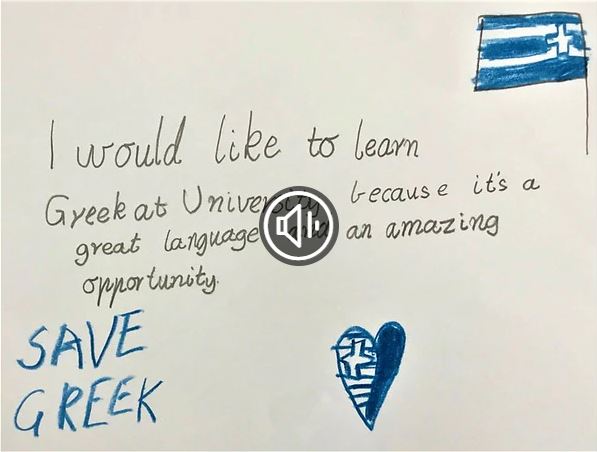 I would like to learn
Greek at University because it's a
great language and an amazing
opportunity.
SAVE
GREEK